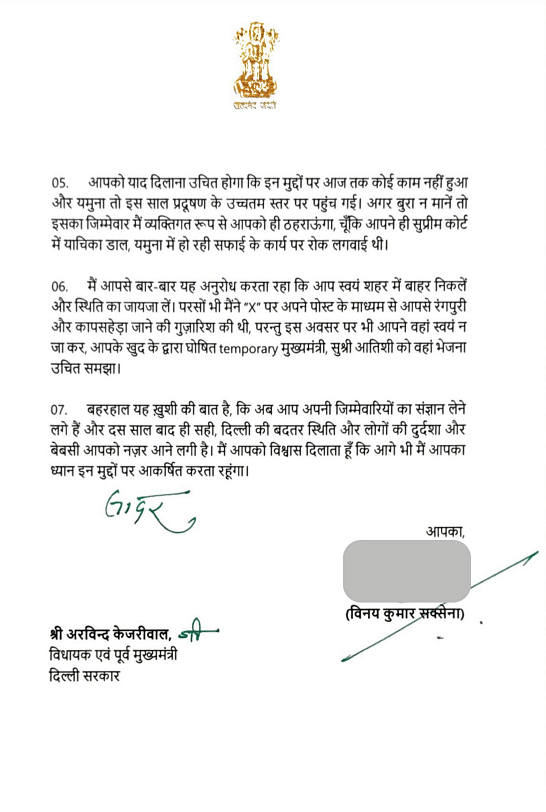 सत्यमेव जयते
05. आपको याद दिलाना उचित होगा कि इन मुद्दों पर आज तक कोई काम नहीं हुआ
और यमुना तो इस साल प्रदूषण के उच्चतम स्तर पर पहुंच गई। अगर बुरा न मानें तो
इसका जिम्मेवार मैं व्यक्तिगत रूप से आपको ही ठहराऊंगा, चूँकि आपने ही सुप्रीम कोर्ट
में याचिका डाल, यमुना में हो रही सफाई के कार्य पर रोक लगवाई थी।
06. मैं आपसे बार-बार यह अनुरोध करता रहा कि आप स्वयं शहर में बाहर निकलें
और स्थिति का जायजा लें। परसों भी मैंने “X” पर अपने पोस्ट के माध्यम से आपसे रंगपुरी
और कापसहेड़ा जाने की गुज़ारिश की थी, परन्तु इस अवसर पर भी आपने वहां स्वयं न
जा कर, आपके खुद के द्वारा घोषित temporary मुख्यमंत्री, सुश्री आतिशी को वहां भेजना
उचित समझा।
07. बहरहाल यह ख़ुशी की बात है, कि अब आप अपनी जिम्मेवारियों का संज्ञान लेने
लगे हैं और दस साल बाद ही सही, दिल्ली की बदतर स्थिति और लोगों की दुर्दशा और
बेबसी आपको नज़र आने लगी है। मैं आपको विश्वास दिलाता हूँ कि आगे भी मैं आपका
ध्यान इन मुद्दों पर आकर्षित करता रहूंगा।
सादर
आपका,
(विनय कुमार सक्सेना)
श्री अरविन्द केजरीवाल, जी
विधायक एवं पूर्व मुख्यमंत्री
दिल्ली सरकार